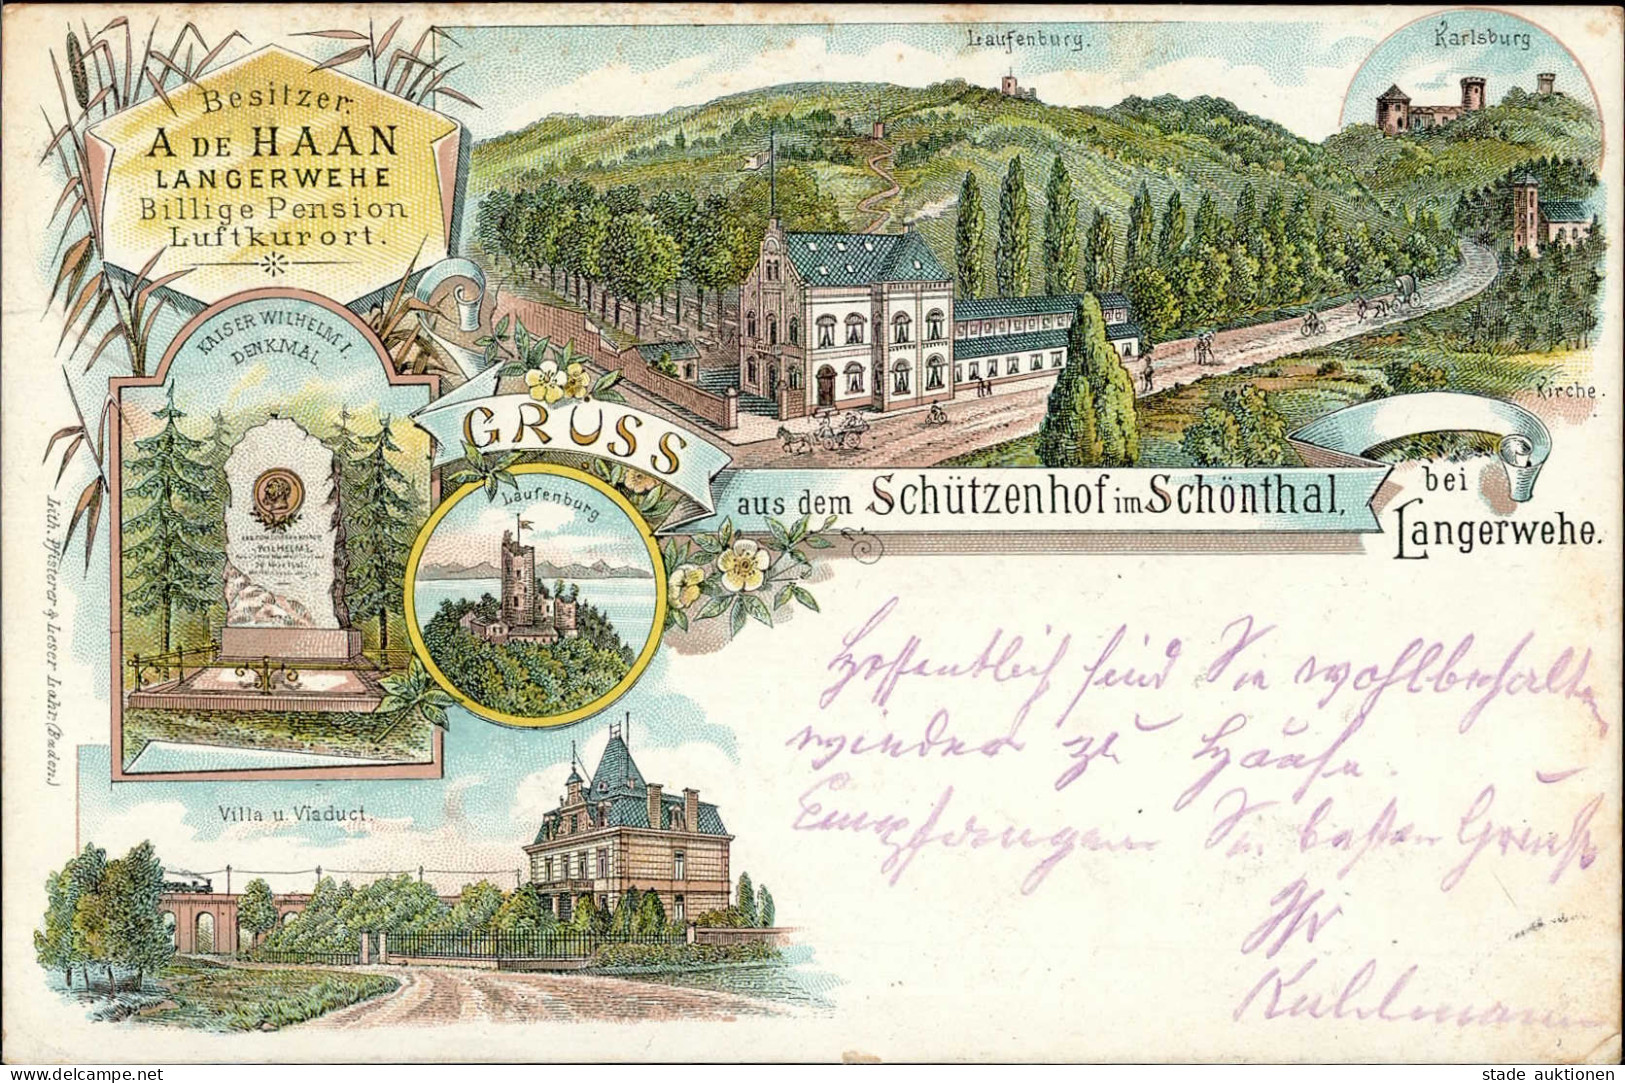 Besitzer:
A DE HAAN
LANGERWEHE
Billige Pension
Luftkurort.
Laufenburg.
Karlsburg
Kirche.
KAISER WILHELM I.
DENKMAL
WILHELM I.
Laufenburg
GRUSS
aus dem Schützenhof im Schönthal,
bei
Langerwehe.
Villa u. Viaduct.
Lith. Pfisterer & Leser Lahr. (Baden.)
Hoffentlich sind Sie wohlbehalten
wieder zu Hause.
Empfangen Sie besten Gruß
Ihr
Kuhlmann
www.delcampe.net
stade auktionen